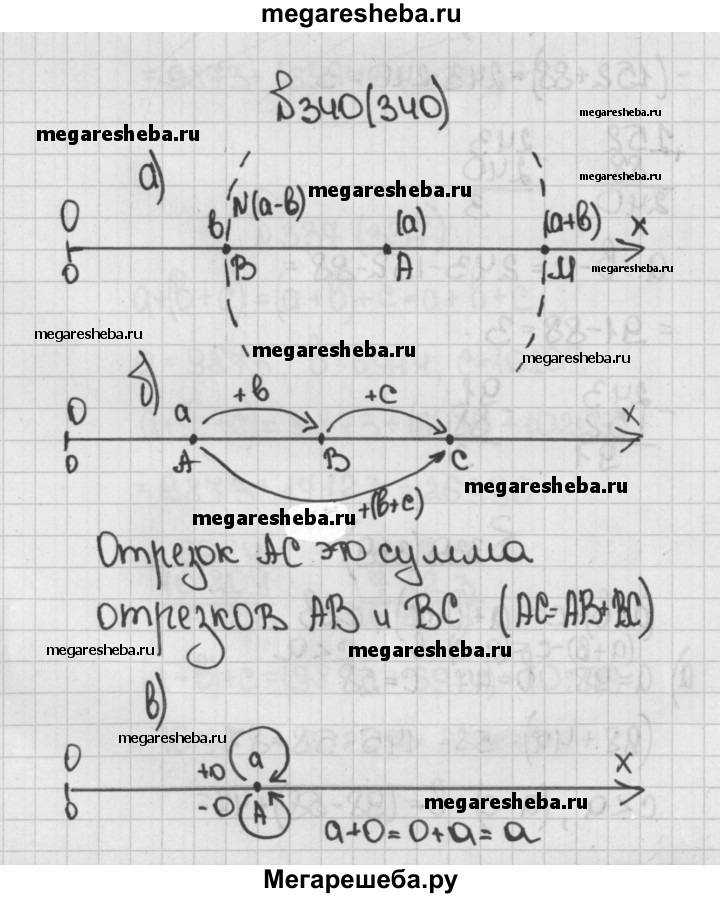 megaresheba.ru
№340(340)
megaresheba.ru
а)
N(a-в) megaresheba.ru
O в (a) (a+в) x
O B A M megaresheba.ru
megaresheba.ru
megaresheba.ru
megaresheba.ru
б) +в +c
O a x
O A B C
megaresheba.ru
megaresheba.ru +(в+c)
Отрезок AC это сумма
отрезков AB и BC (AC=AB+BC)
megaresheba.ru megaresheba.ru
в)
megaresheba.ru
O +0 a x
O -0 A megaresheba.ru
a+0=0+a=a
Мегарешеба.ру